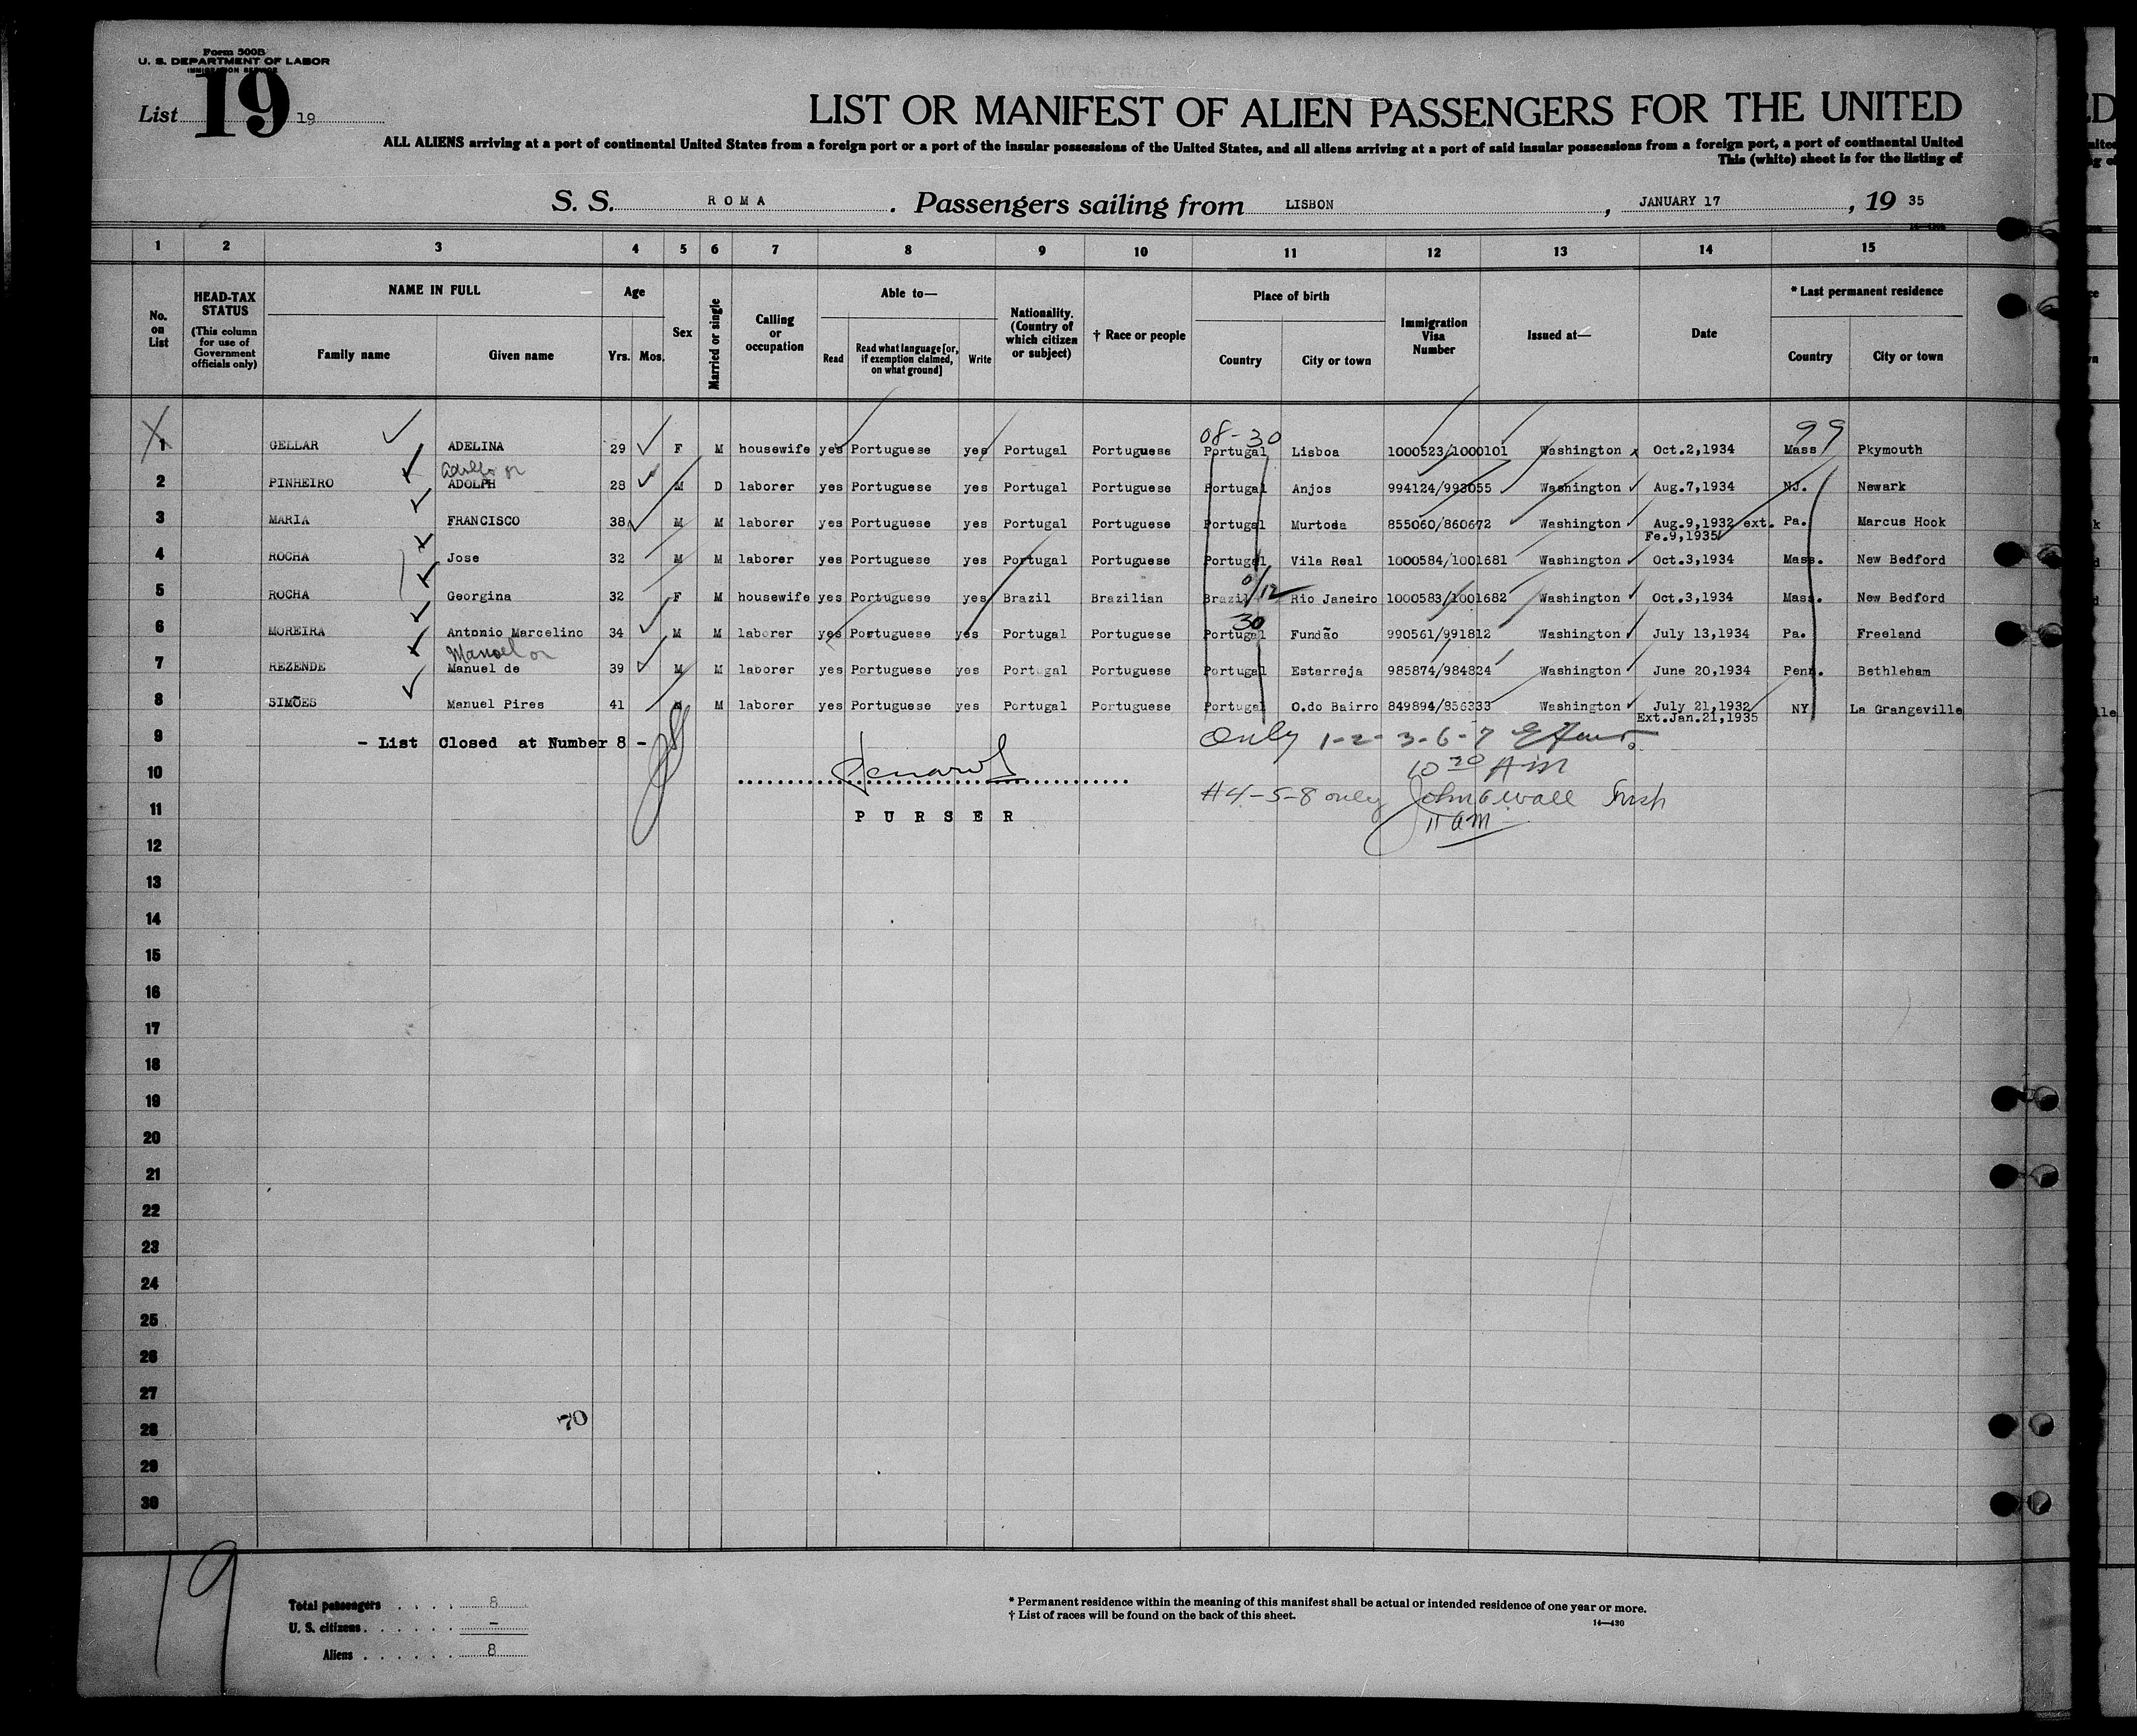 Form 500B
U. S. DEPARTMENT OF LABOR
IMMIGRATION SERVICE
List 19 19
LIST OR MANIFEST OF ALIEN PASSENGERS FOR THE UNITED
ALL ALIENS arriving at a port of continental United States from a foreign port or a port of the insular possessions of the United States, and all aliens arriving at a port of said insular possessions from a foreign port, a port of continental United
This (white) sheet is for the listing of
S. S. ROMA . Passengers sailing from LISBON , JANUARY 17 , 19 35
1 2 3 4 5 6 7 8 9 10 11 12 13 14 15
No. on List
HEAD-TAX STATUS (This column for use of Government officials only)
NAME IN FULL
Family name Given name
Age
Yrs. Mos.
Sex
Married or single
Calling or occupation
Able to—
Read Read what language [or, if exemption claimed, on what ground] Write
Nationality. (Country of which citizen or subject)
† Race or people
Place of birth
Country City or town
Immigration Visa Number
Issued at—
Date
* Last permanent residence
Country City or town
08-30 99
1 GELLAR ADELINA 29 F M housewife yes Portuguese yes Portugal Portuguese Portugal Lisboa 1000523/1000101 Washington Oct.2,1934 Mass Pkymouth
Adolfo or
2 PINHEIRO ADOLPH 28 M D laborer yes Portuguese yes Portugal Portuguese Portugal Anjos 994124/993055 Washington Aug.7,1934 NJ. Newark
3 MARIA FRANCISCO 38 M M laborer yes Portuguese yes Portugal Portuguese Portugal Murtosa 855060/860672 Washington Aug.9,1932 ext. Pa. Marcus Hook
Fe.9,1935
4 ROCHA Jose 32 M M laborer yes Portuguese yes Portugal Portuguese Portugal Vila Real 1000584/1001681 Washington Oct.3,1934 Mass. New Bedford
0/12
5 ROCHA Georgina 32 F M housewife yes Portuguese yes Brazil Brazilian Brazil Rio Janeiro 1000583/1001682 Washington Oct.3,1934 Mass. New Bedford
30
6 MOREIRA Antonio Marcelino 34 M M laborer yes Portuguese yes Portugal Portuguese Portugal Fundão 990561/991812 Washington July 13,1934 Pa. Freeland
Manoel or
7 REZENDE Manuel de 39 M M laborer yes Portuguese yes Portugal Portuguese Portugal Estarreja 985874/984324 Washington June 20,1934 Penn. Bethleham
8 SIMÕES Manuel Pires 41 M M laborer yes Portuguese yes Portugal Portuguese Portugal O.do Bairro 849894/856333 Washington July 21,1932 NY La Grangeville
Ext.Jan.21,1935
9 - List Closed at Number 8 - Only 1-2-3-6-7
10 10 30 AM
#4-5-8 only John Wall Insp
11 PURSER 11 am
12
13
14
15
16
17
18
19
20
21
22
23
24
25
26
27
28 70
29
30
19
Total passengers . . . . 8
U. S. citizens . . . . . . –
Aliens . . . . . . 8
* Permanent residence within the meaning of this manifest shall be actual or intended residence of one year or more.
† List of races will be found on the back of this sheet.
14—430